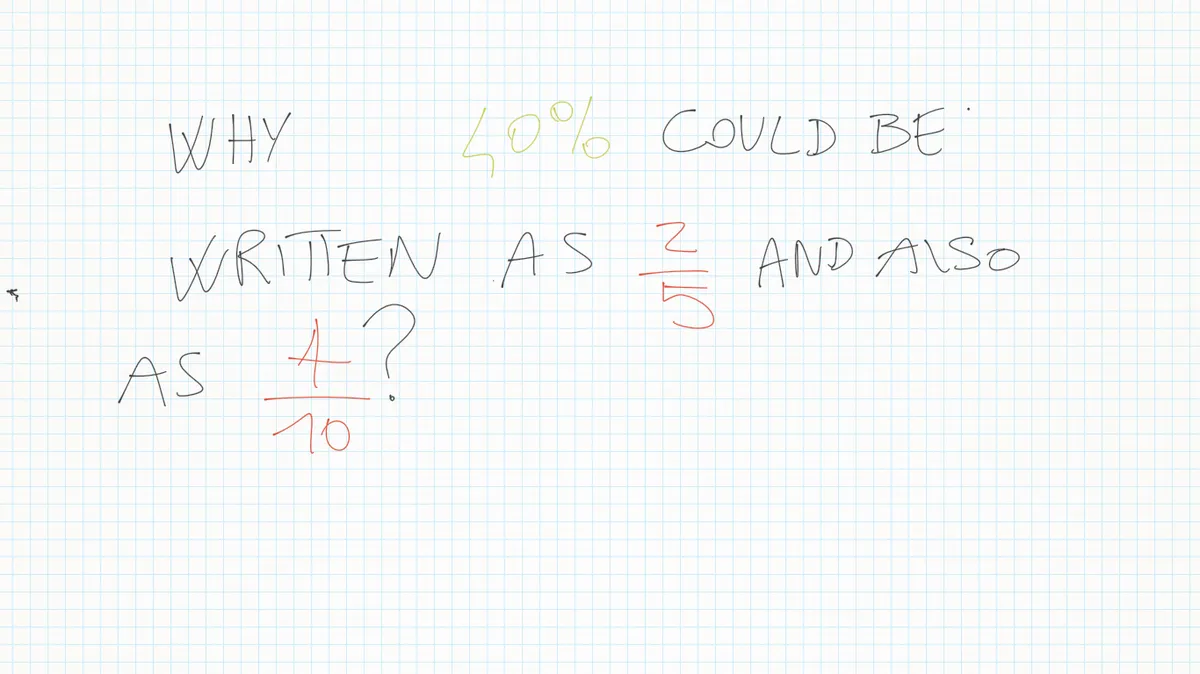 WHY 40% COULD BE
WRITTEN AS 2/5 AND ALSO
AS 4/10?